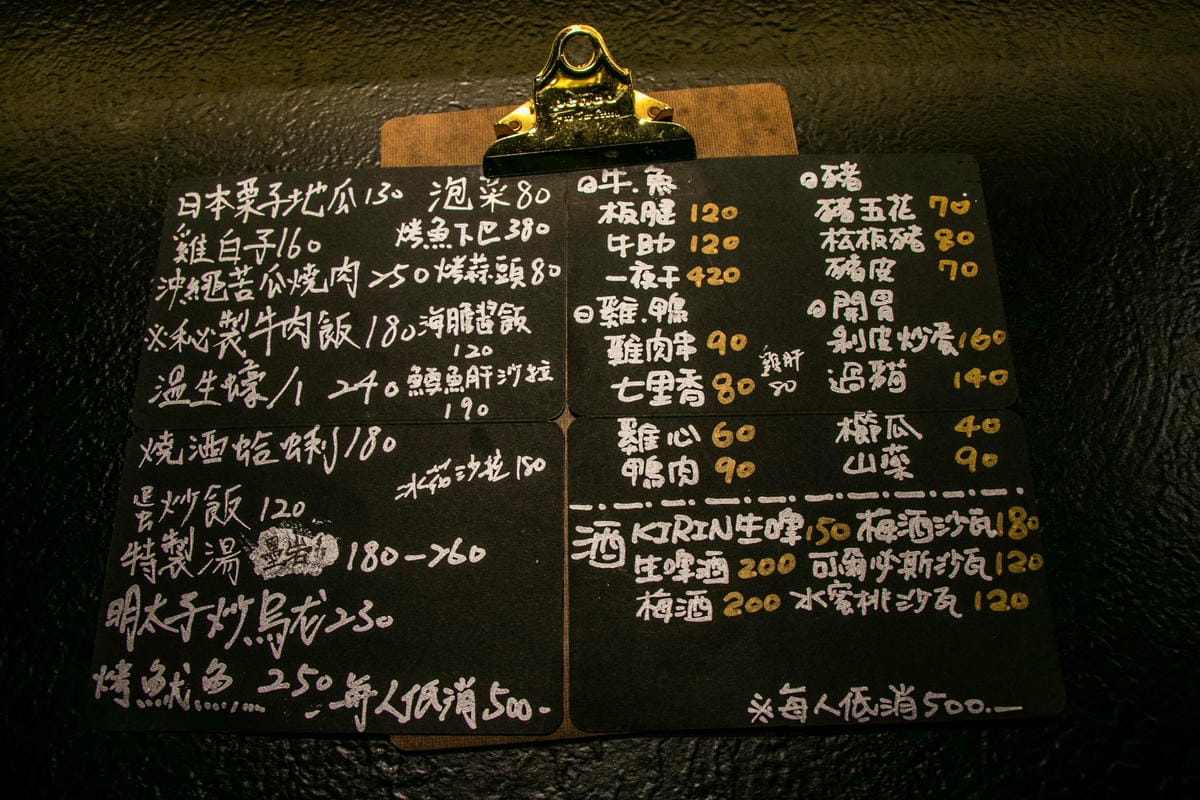 日本栗子地瓜130 泡菜80
雞白子160 烤魚下巴380
沖繩苦瓜燒肉250 烤蒜頭80
※私必製牛肉飯180 海膽醬飯
120
溫生蠔/1 240 鱈魚肝沙拉
190
燒酒蛤蜊180
冰茄沙拉180
蛋炒飯120
特製湯 180-260
明太子炒烏龙230
烤魷魚 250
每人低消500-
牛.魚
板腱 120
牛肋 120
一夜干420
雞.鴨
雞肉串90
七里香80 雞肝
80
雞心60
鴨肉90
豬
豬五花 70
松板豬80
豬皮 70
開胃
剝皮炒蛋160
過貓 140
櫛瓜 40
山藥 90
酒 KIRIN生啤150 梅酒沙瓦180
生啤酒200 可爾必斯沙瓦120
梅酒200 水蜜桃沙瓦120
※每人低消500.—